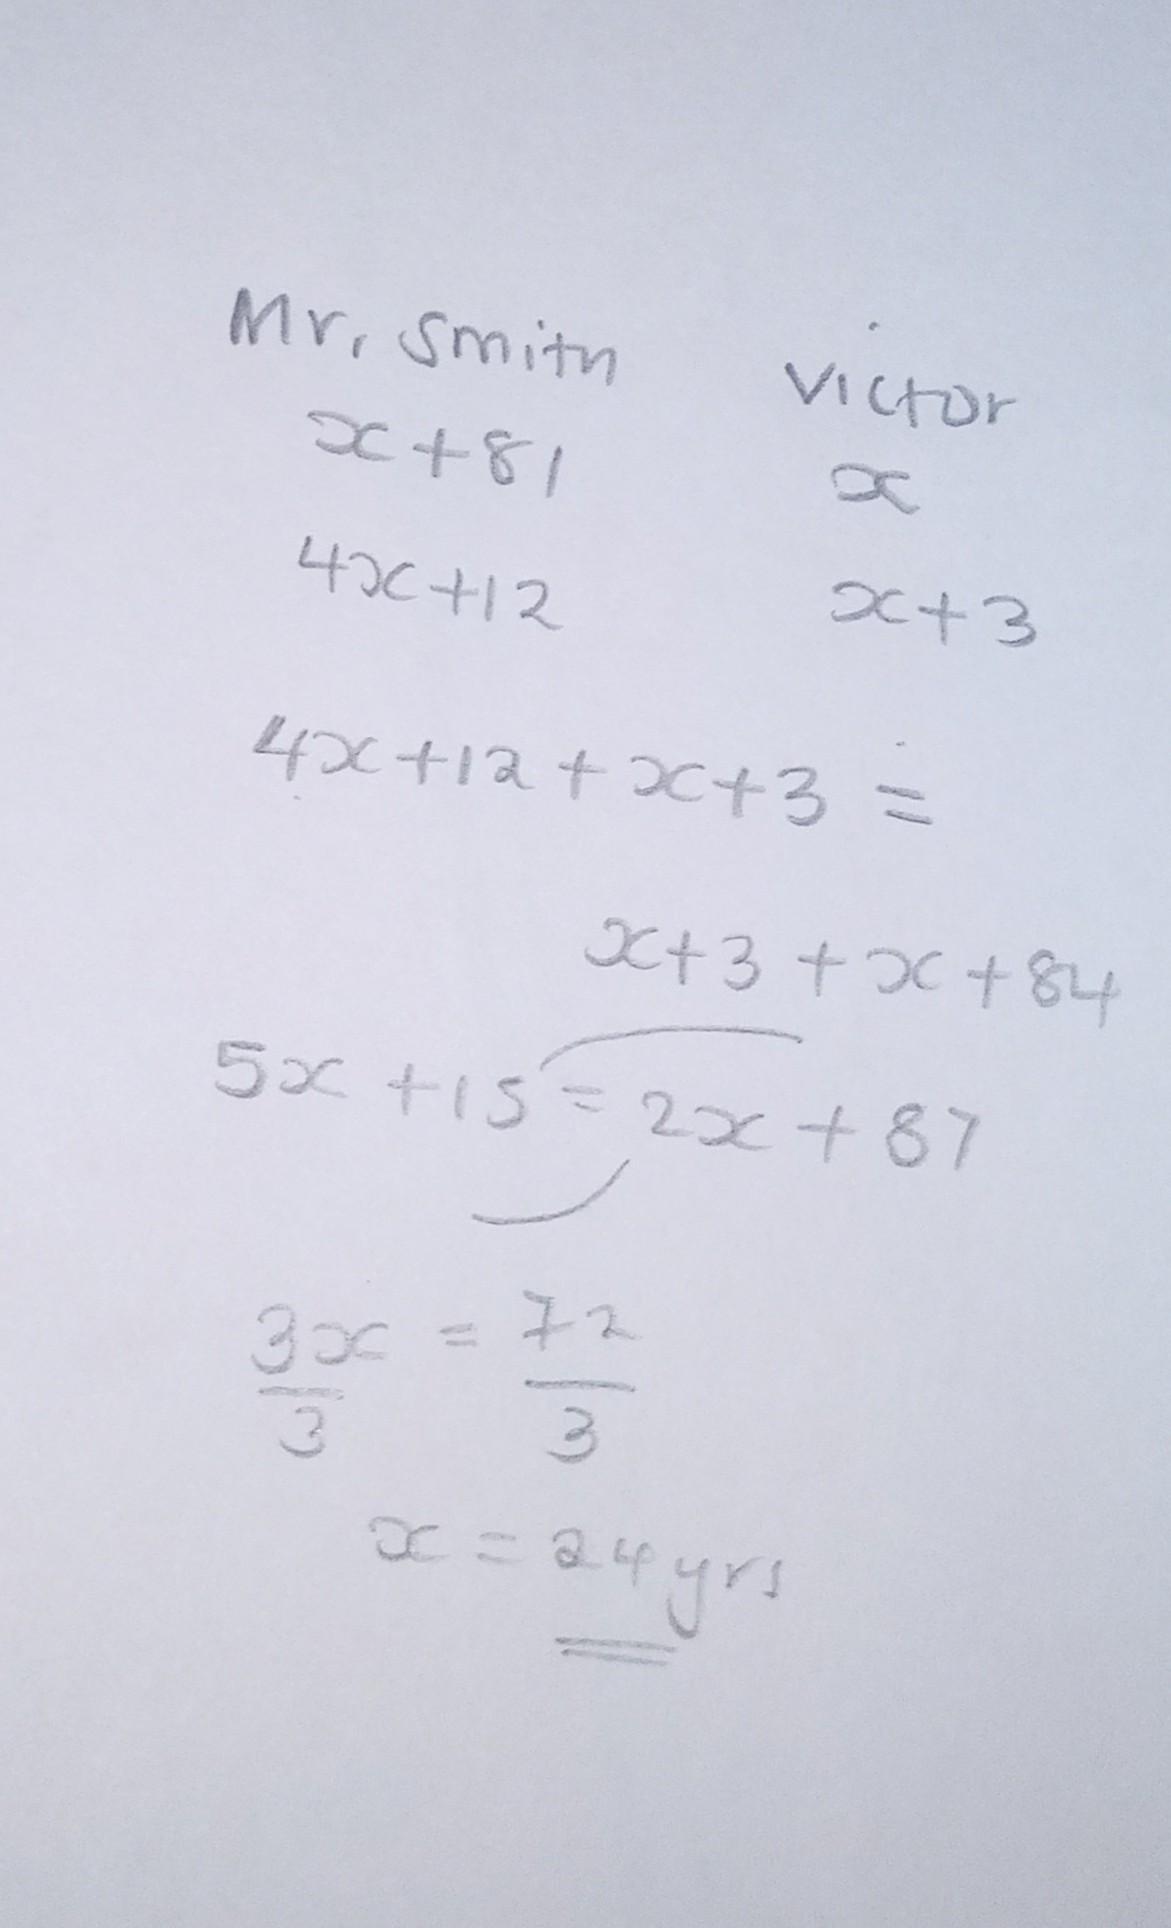 Mr. Smith Victor
x+81 x
4x+12 x+3
4x+12+x+3 =
x+3+x+84
5x+15=2x+87
3x = 72
3 3
x = 24yrs